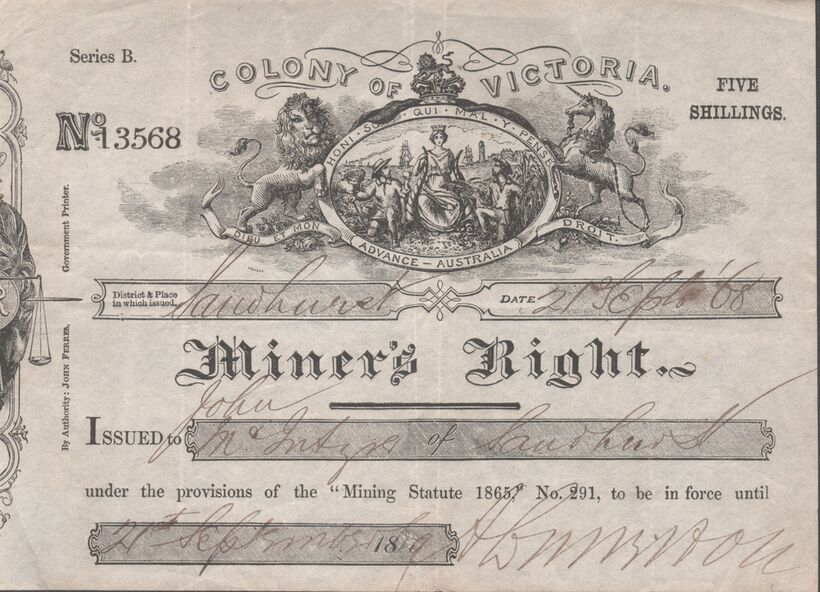 Series B.
COLONY OF VICTORIA.
FIVE
SHILLINGS.
No 13568
HONI · SOI · QUI · MAL · Y · PENSE
DIEU ET MON DROIT.
ADVANCE — AUSTRALIA
Government Printer.
By Authority: JOHN FERRES,
District & Place
in which issued. Sandhurst DATE 21st Septr '68
Miner's Right.
John
ISSUED to McIntyre of Sandhurst
under the provisions of the “Mining Statute 1865,” No. 291, to be in force until
21st September 1869